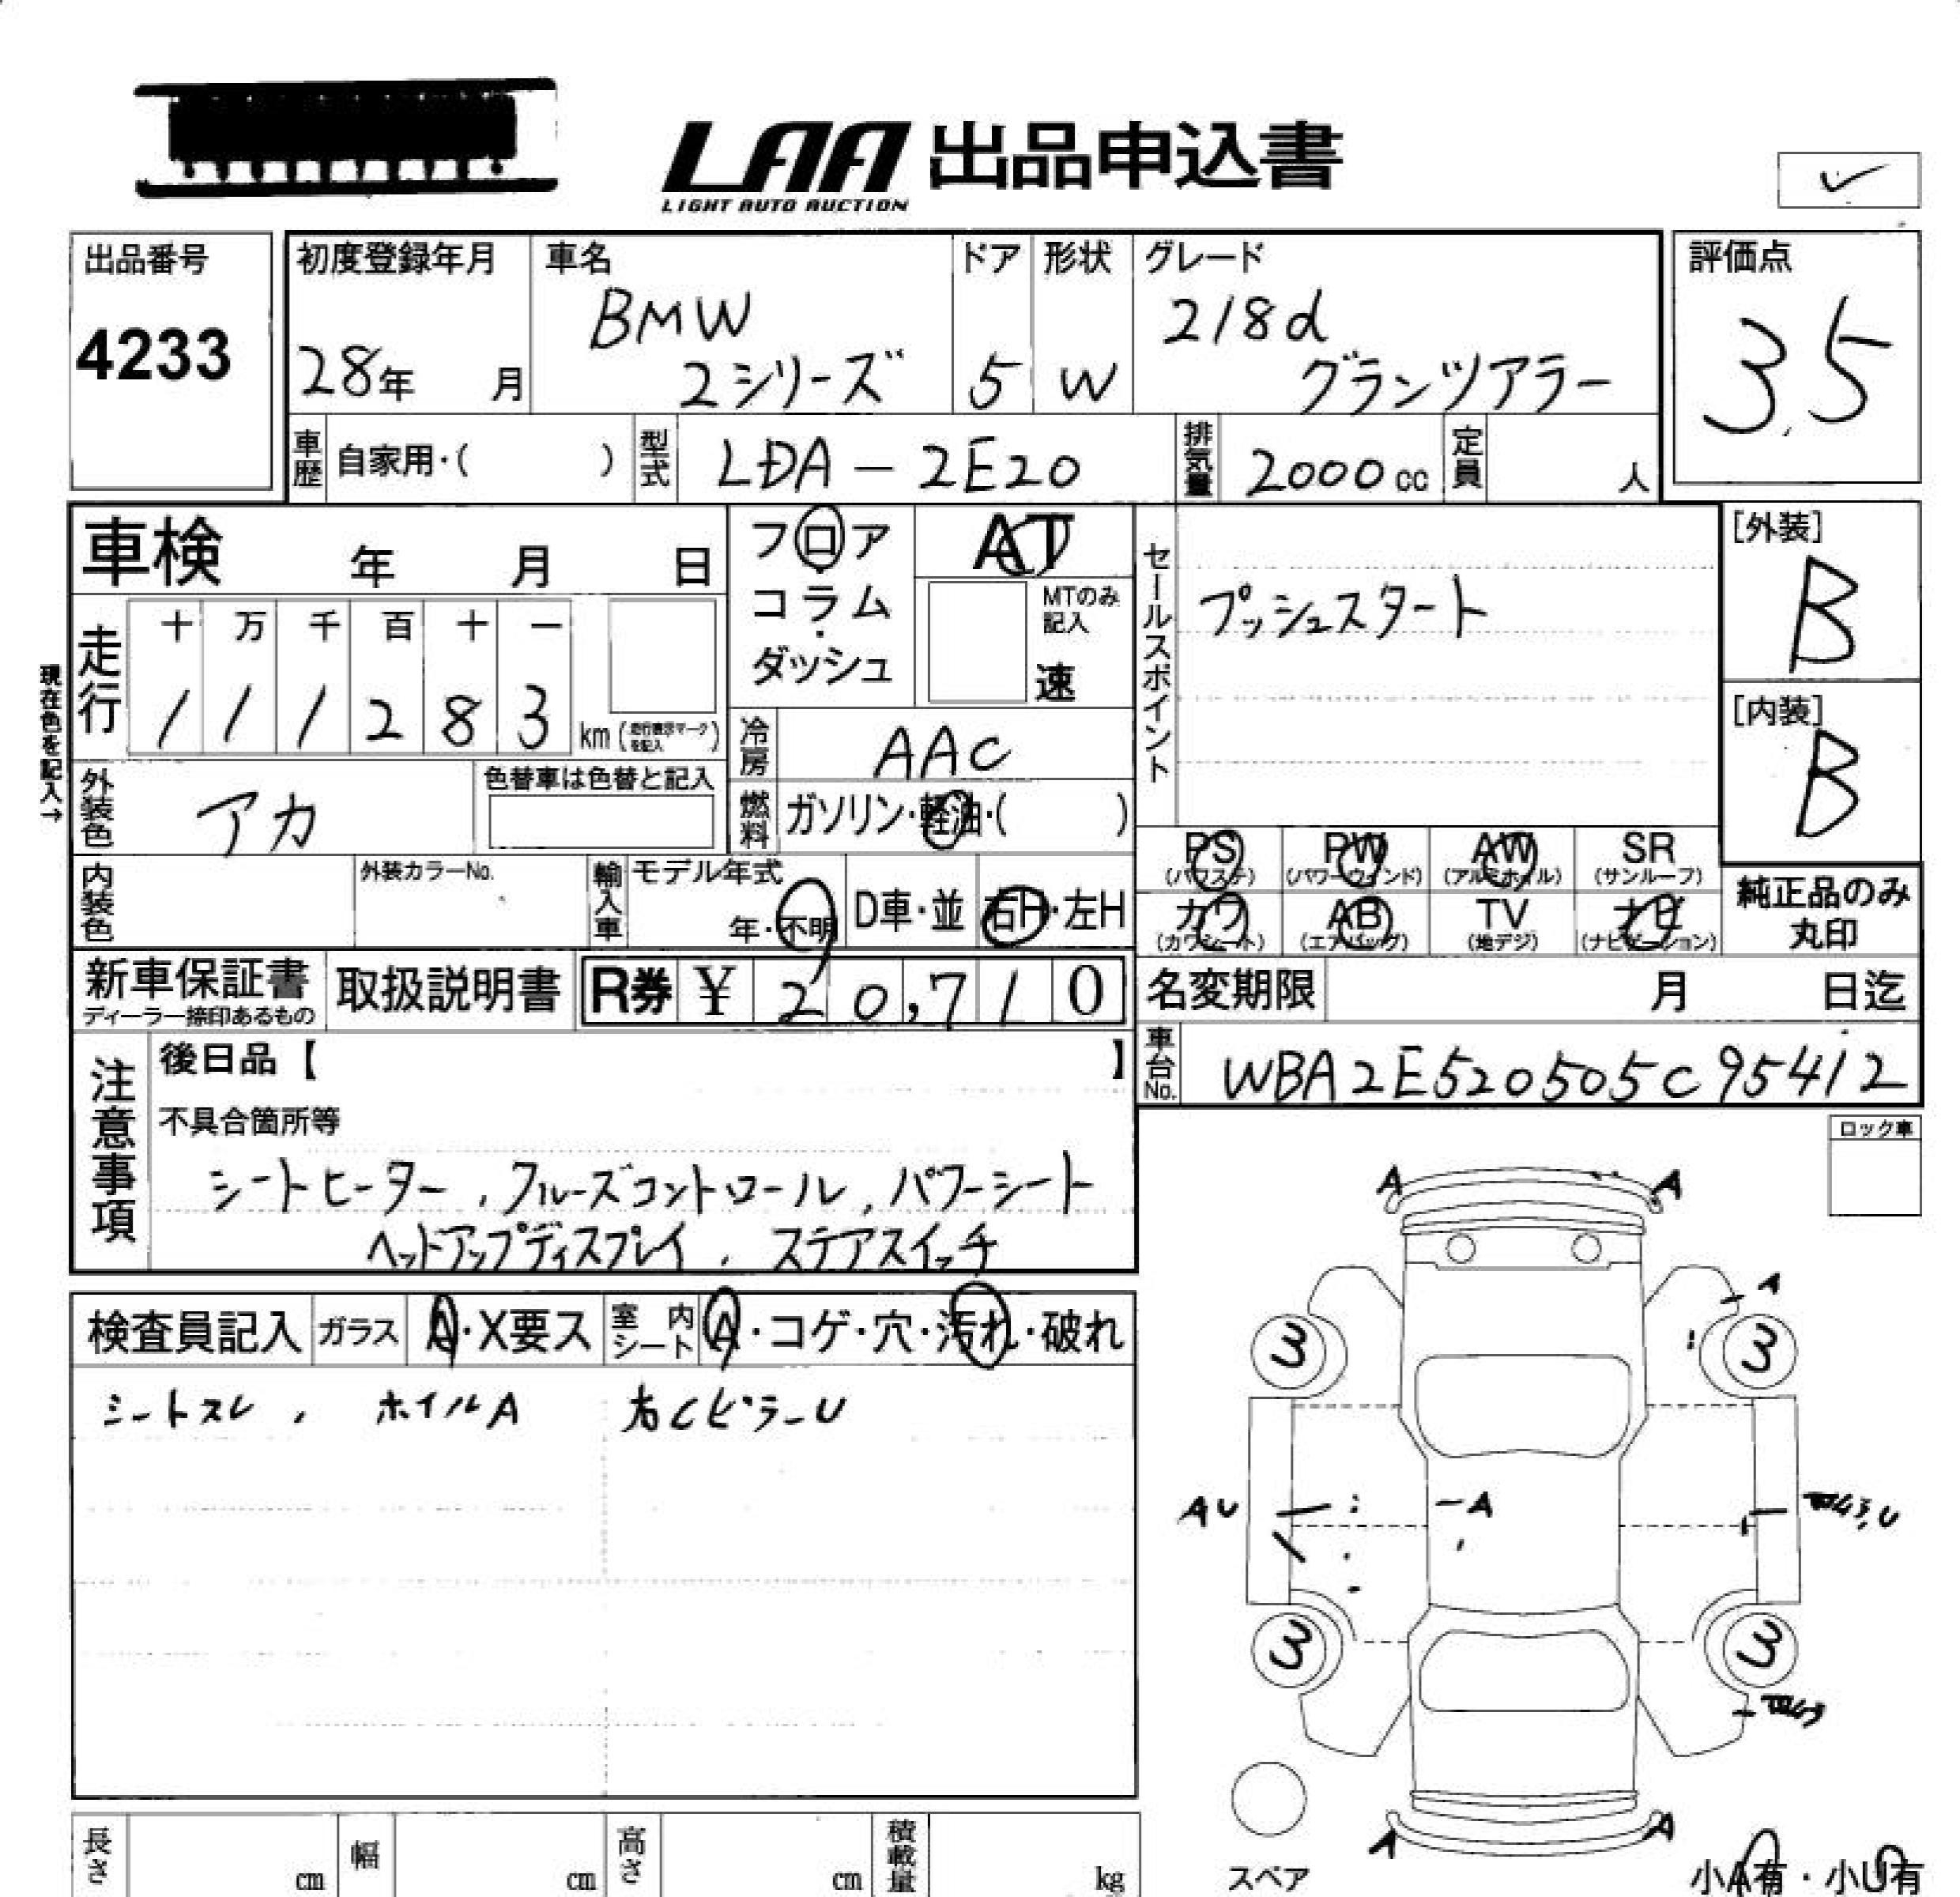 LAA 出品申込書
LIGHT AUTO AUCTION
出品番号
4233
初度登録年月
28年 月
車名
BMW
2シリーズ
ドア
5
形状
W
グレード
218d
グランツアラー
評価点
3.5
車歴 自家用・( )
型式 LDA-2E20
排気量 2000cc
定員 人
車検 年 月 日
フロア
・
コラム
・
ダッシュ
AT
MTのみ
記入
速
セールスポイント
プッシュスタート
[外装]
B
[内装]
B
現在色を記入→
走行
十 万 千 百 十 一
1 1 1 2 8 3 km
冷房 AAC
燃料 ガソリン・軽油・( )
外装色 アカ
色替車は色替と記入
内装色
外装カラーNo.
輸入車
モデル年式
年・不明
D車・並
右H・左H
PS
(パワステ)
PW
(パワーウィンド)
AW
(アルミホイル)
SR
(サンルーフ)
カワ
(カワシート)
AB
(エアバッグ)
TV
(地デジ)
ナビ
(ナビゲーション)
純正品のみ
丸印
新車保証書
ディーラー捺印あるもの
取扱説明書
R券 ¥ 20,710
名変期限 月 日迄
車台No. WBA2E520505C95412
注意事項
後日品【 】
不具合箇所等
シートヒーター, クルーズコントロール, パワーシート
ヘッドアップディスプレイ, ステアスイッチ
ロック車
検査員記入
ガラス A・X要ス
室内シート A・コゲ・穴・汚れ・破れ
シートスレ, ホイルA 右CピラーU
A A
A
3 3
AU A
3 3
A A
スペア
小A有・小U有
長さ cm
幅 cm
高さ cm
積載量 kg